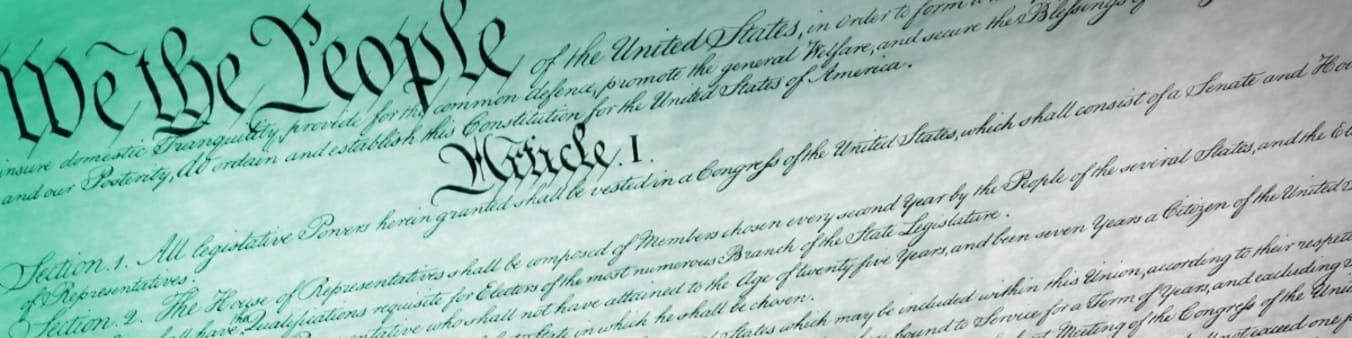 We the People of the United States, in Order to form a
insure domestic Tranquility, provide for the common defence, promote the general Welfare, and secure the Blessings of
and our Posterity, do ordain and establish this Constitution for the United States of America.
Article. I.
Section. 1. All legislative Powers herein granted shall be vested in a Congress of the United States, which shall consist of a Senate and
of Representatives.
Section. 2. The House of Representatives shall be composed of Members chosen every second Year by the People of the several States, and the
shall have the Qualifications requisite for Electors of the most numerous Branch of the State Legislature.
who shall not have attained to the Age of twenty five Years, and been seven Years a Citizen of the United
State in which he shall be chosen.
States which may be included within this Union, according to their
bound to Service for a Term of Years, and excluding
Meeting of the Congress of the
not exceed one